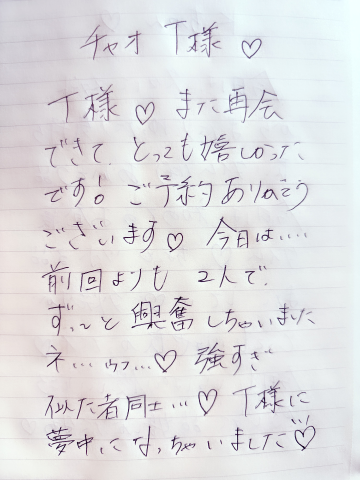 チャオ T様 ♡
T様 ♡ また再会
できて、とっても嬉しかった
です! ご予約ありがとう
ございます♡ 今日は.....
前回よりも 2人で、
ずーっと興奮しちゃいました
ネ...ウフ...♡ 強すぎ
似た者同士...♡ T様に
夢中になっちゃいました♡